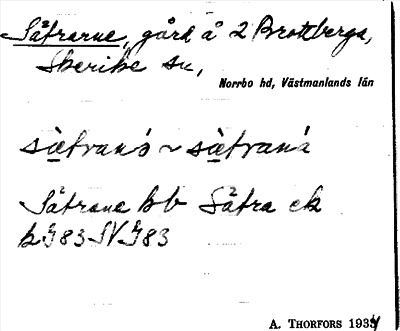 Såtrarne, gård å 2 Brottberga,
Skerike sn,
Norrbo hd, Västmanlands län
sætranɔ ~ sætrana
Såtrane hb Såtra ek
bJ83 SV J83
A. THORFORS 1934